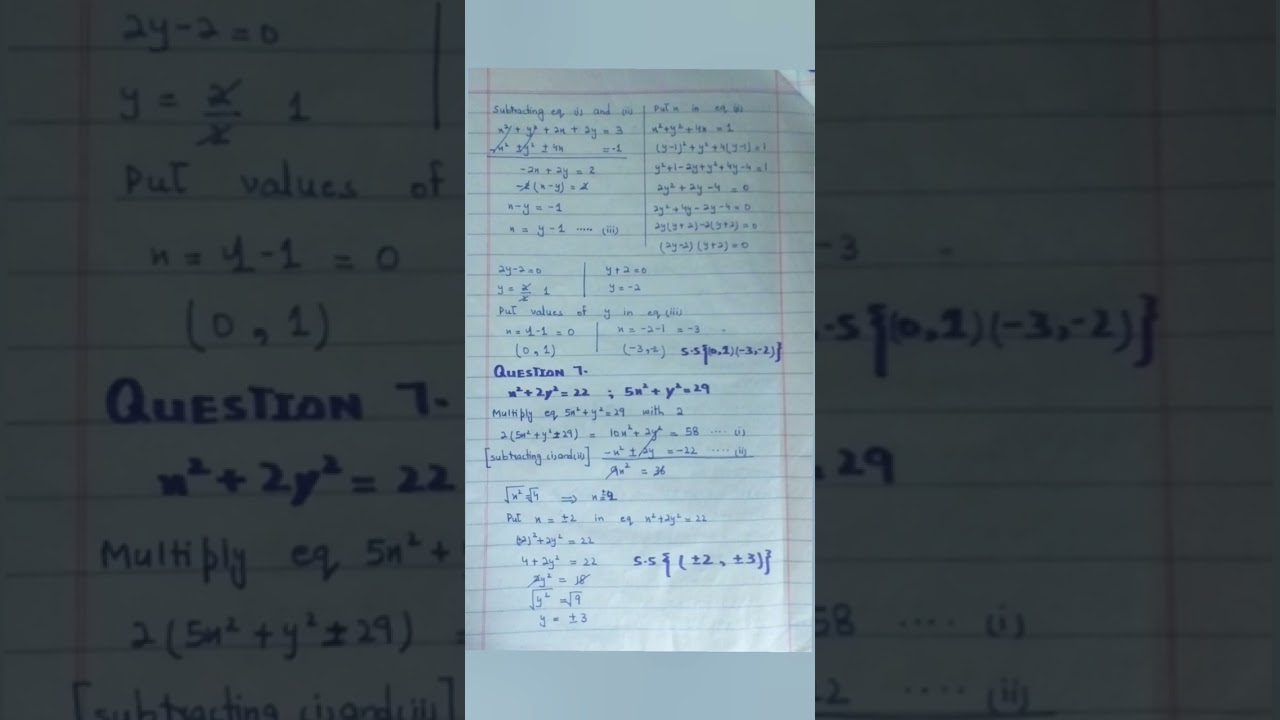 Subtracting eq (i) and (ii)
x² + y² + 2x + 2y = 3
-x² ± y² ± 4x = -1
-2x + 2y = 2
-2(x-y) = 2
x-y = -1
x = y-1 ..... (iii)
Put x in eq (ii)
x²+y²+4x = 1
(y-1)²+y²+4(y-1)=1
y²+1-2y+y²+4y-4=1
2y²+2y-4 = 0
2y²+4y-2y-4=0
2y(y+2)-2(y+2)=0
(2y-2)(y+2)=0
2y-2=0
y = 2/2 1
y+2=0
y=-2
Put values of y in eq(iii)
x=1-1 = 0
(0,1)
x = -2-1 = -3
S.S{(0,1)(-3,-2)}
QUESTION 7.
x²+2y²=22 ; 5x²+y²=29
Multiply eq 5x²+y²=29 with 2
2(5x²+y²±29) = 10x²+2y² = 58 .... (i)
[subtracting (i) and (ii)] -x² ± 2y = -22 .... (ii)
9x² = 36
√x² = √4 ⇒
Put x = ±2 in eq x²+2y²=22
(2)²+2y² = 22
4+2y² = 22
2y² = 18
√y² = √9
y = ±3
S.S{(±2, ±3)}